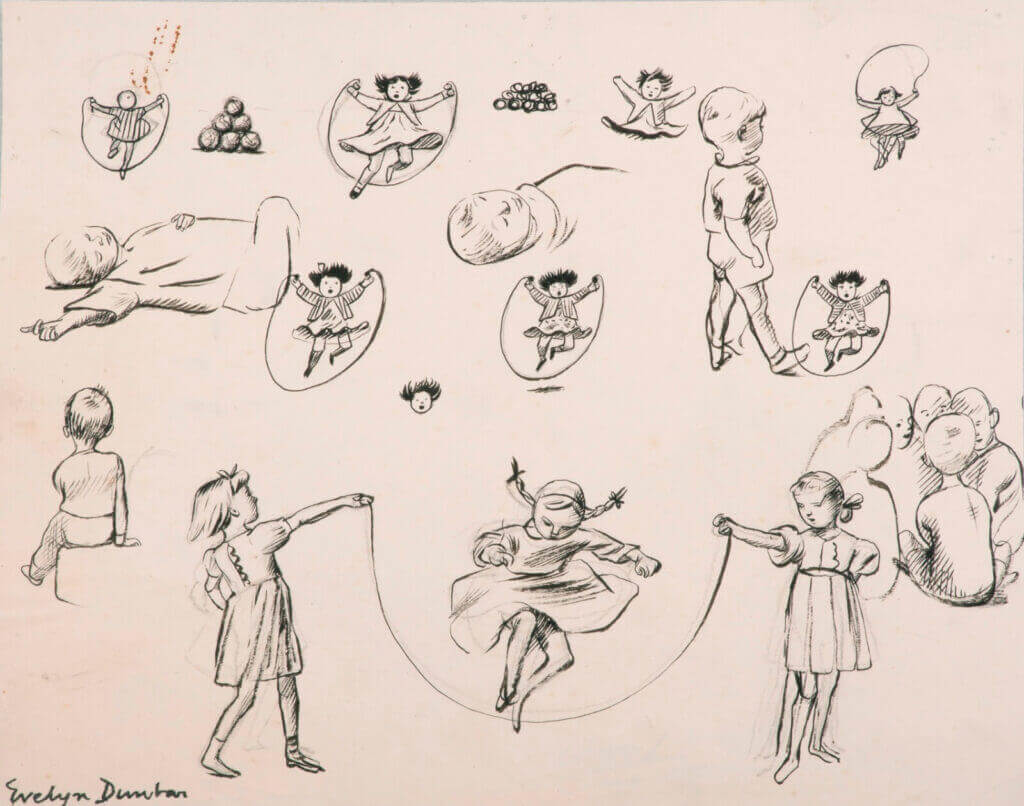 Evelyn Dunbar